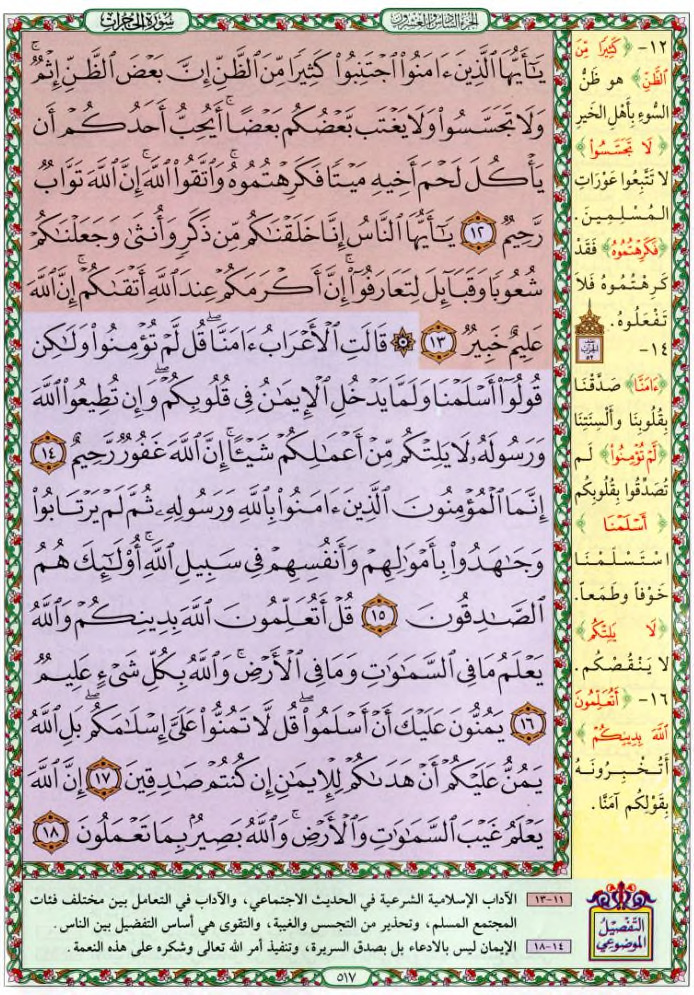 سُورَةُ الحُجُرَاتِ
الجزء السادس والعشرون
يَـٰٓأَيُّهَا ٱلَّذِينَ ءَامَنُوا۟ ٱجْتَنِبُوا۟ كَثِيرًا مِّنَ ٱلظَّنِّ إِنَّ بَعْضَ ٱلظَّنِّ إِثْمٌ ۖ
وَلَا تَجَسَّسُوا۟ وَلَا يَغْتَب بَّعْضُكُم بَعْضًا ۚ أَيُحِبُّ أَحَدُكُمْ أَن
يَأْكُلَ لَحْمَ أَخِيهِ مَيْتًا فَكَرِهْتُمُوهُ ۚ وَٱتَّقُوا۟ ٱللَّهَ ۚ إِنَّ ٱللَّهَ تَوَّابٌ
رَّحِيمٌ ١٢ يَـٰٓأَيُّهَا ٱلنَّاسُ إِنَّا خَلَقْنَـٰكُم مِّن ذَكَرٍ وَأُنثَىٰ وَجَعَلْنَـٰكُمْ
شُعُوبًا وَقَبَآئِلَ لِتَعَارَفُوٓا۟ ۚ إِنَّ أَكْرَمَكُمْ عِندَ ٱللَّهِ أَتْقَىٰكُمْ ۚ إِنَّ ٱللَّهَ
عَلِيمٌ خَبِيرٌ ١٣ ۞ قَالَتِ ٱلْأَعْرَابُ ءَامَنَّا ۖ قُل لَّمْ تُؤْمِنُوا۟ وَلَـٰكِن
قُولُوٓا۟ أَسْلَمْنَا وَلَمَّا يَدْخُلِ ٱلْإِيمَـٰنُ فِى قُلُوبِكُمْ ۖ وَإِن تُطِيعُوا۟ ٱللَّهَ
وَرَسُولَهُۥ لَا يَلِتْكُم مِّنْ أَعْمَـٰلِكُمْ شَيْـًٔا ۚ إِنَّ ٱللَّهَ غَفُورٌ رَّحِيمٌ ١٤
إِنَّمَا ٱلْمُؤْمِنُونَ ٱلَّذِينَ ءَامَنُوا۟ بِٱللَّهِ وَرَسُولِهِۦ ثُمَّ لَمْ يَرْتَابُوا۟
وَجَـٰهَدُوا۟ بِأَمْوَٰلِهِمْ وَأَنفُسِهِمْ فِى سَبِيلِ ٱللَّهِ ۚ أُو۟لَـٰٓئِكَ هُمُ
ٱلصَّـٰدِقُونَ ١٥ قُلْ أَتُعَلِّمُونَ ٱللَّهَ بِدِينِكُمْ وَٱللَّهُ
يَعْلَمُ مَا فِى ٱلسَّمَـٰوَٰتِ وَمَا فِى ٱلْأَرْضِ ۚ وَٱللَّهُ بِكُلِّ شَىْءٍ عَلِيمٌ
١٦ يَمُنُّونَ عَلَيْكَ أَنْ أَسْلَمُوا۟ ۖ قُل لَّا تَمُنُّوا۟ عَلَىَّ إِسْلَـٰمَكُم ۖ بَلِ ٱللَّهُ
يَمُنُّ عَلَيْكُمْ أَنْ هَدَىٰكُمْ لِلْإِيمَـٰنِ إِن كُنتُمْ صَـٰدِقِينَ ١٧ إِنَّ ٱللَّهَ
يَعْلَمُ غَيْبَ ٱلسَّمَـٰوَٰتِ وَٱلْأَرْضِ ۚ وَٱللَّهُ بَصِيرٌۢ بِمَا تَعْمَلُونَ ١٨
١٢- ﴿كَثِيرًا مِّنَ
ٱلظَّنِّ﴾ هو ظَنُّ
السُّوءِ بِأَهْلِ الخَيرِ
﴿لَا تَجَسَّسُوا۟﴾
لا تَتَّبِعُوا عَوْرَاتِ
المُسْلِمِينَ.
﴿فَكَرِهْتُمُوهُ﴾ فَقَدْ
كَرِهْتُمُوهُ فَلاَ
تَفْعَلُوهُ.
١٤-
﴿ءَامَنَّا﴾ صَدَّقْنَا
بِقُلُوبِنَا وألْسِنَتِنَا
﴿لَمْ تُؤْمِنُوا۟﴾ لَم
تُصَدِّقُوا بِقُلُوبِكُم
﴿أَسْلَمْنَا﴾
اسْتَسْلَمْنَا
خَوْفاً وطَمَعاً.
﴿لَا يَلِتْكُم﴾
لا يَنْقُصْكُم.
١٦- ﴿أَتُعَلِّمُونَ
ٱللَّهَ بِدِينِكُمْ﴾
أَتُخْبِرُونَهُ
بِقَوْلِكُم آمَنَّا.
التَّفْصِيْلُ
الموضوعي
١١-١٣ الآداب الإسلامية الشرعية في الحديث الاجتماعي، والآداب في التعامل بين مختلف فئات
المجتمع المسلم، وتحذير من التجسس والغيبة، والتقوى هي أساس التفضيل بين الناس.
١٤-١٨ الإيمان ليس بالادعاء بل بصدق السريرة، وتنفيذ أمر الله تعالى وشكره على هذه النعمة.
٥١٧